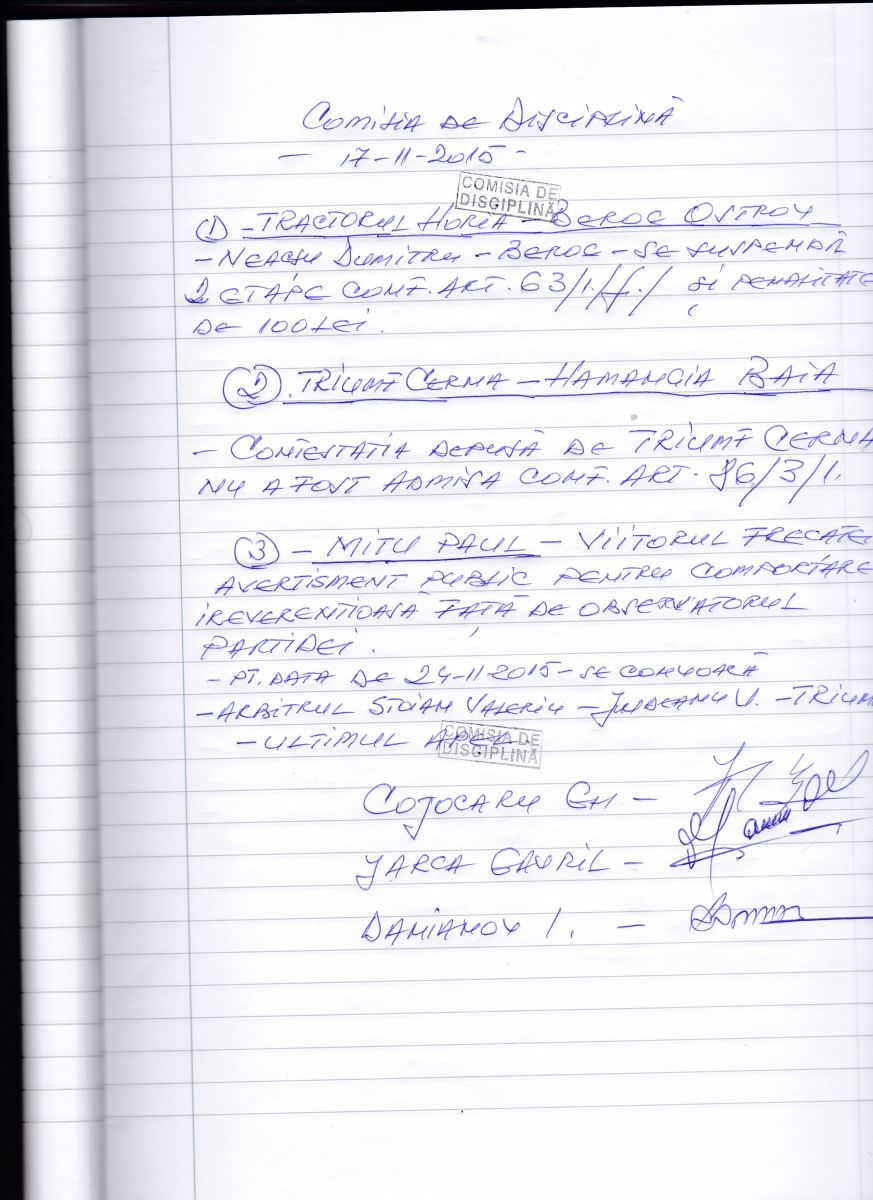 COMISIA DE DISCIPLINĂ
— 17-11-2015 -
COMISIA DE
DISCIPLINĂ
① - TRACTORUL HORIA - BEROE OSTROV
- NEACȘU DUMITRU - BEROE - SE SUSPENDĂ
2 ETAPE CONF. ART. 63/1./f./ și PENALITATE
DE 100 LEI.
② . TRIUMF CERNA - HAMANGIA BAIA
- CONTESTATIA DEPUSĂ DE TRIUMF CERNA
NU A FOST ADMISA CONF. ART. 86/3/1.
③ - MITU PAUL - VIITORUL FRECATEI
AVERTISMENT PUBLIC PENTRU COMPORTARE
IREVERENTIOASĂ FAȚĂ DE OBSERVATORUL
PARTIDEI.
- PT. DATA DE 24-11-2015 - SE CONVOACĂ
- ARBITRUL STOIAN VALERIU - JUDEANU V. - TRIUM
- ULTIMUL APEL
COMISIA DE
DISCIPLINĂ
COJOCARU GH -
IARCA GAVRIL -
DAMIANOV I. -